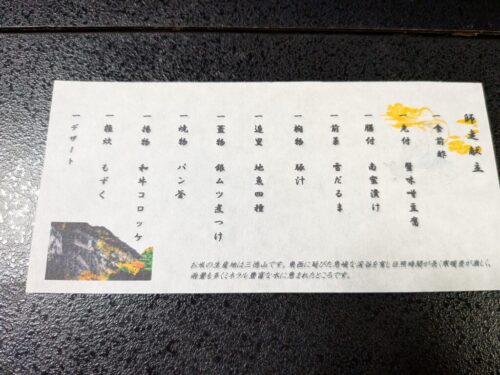 師走献立
一 食前酢
一 先付 蟹味噌豆腐
一 膳付 南蛮漬け
一 前菜 雪だるま
一 椀物 豚汁
一 造里 地魚四種
一 蓋物 銀ムツ煮つけ
一 焼物 パン釜
一 揚物 和牛コロッケ
一 雑炊 もずく
一 デザート
お米の生産地は三徳山です。東西に延びた急峻な渓谷を有し日照時間が長く寒暖差が激しく、
雨量も多くミネラル豊富な水に恵まれたところです。